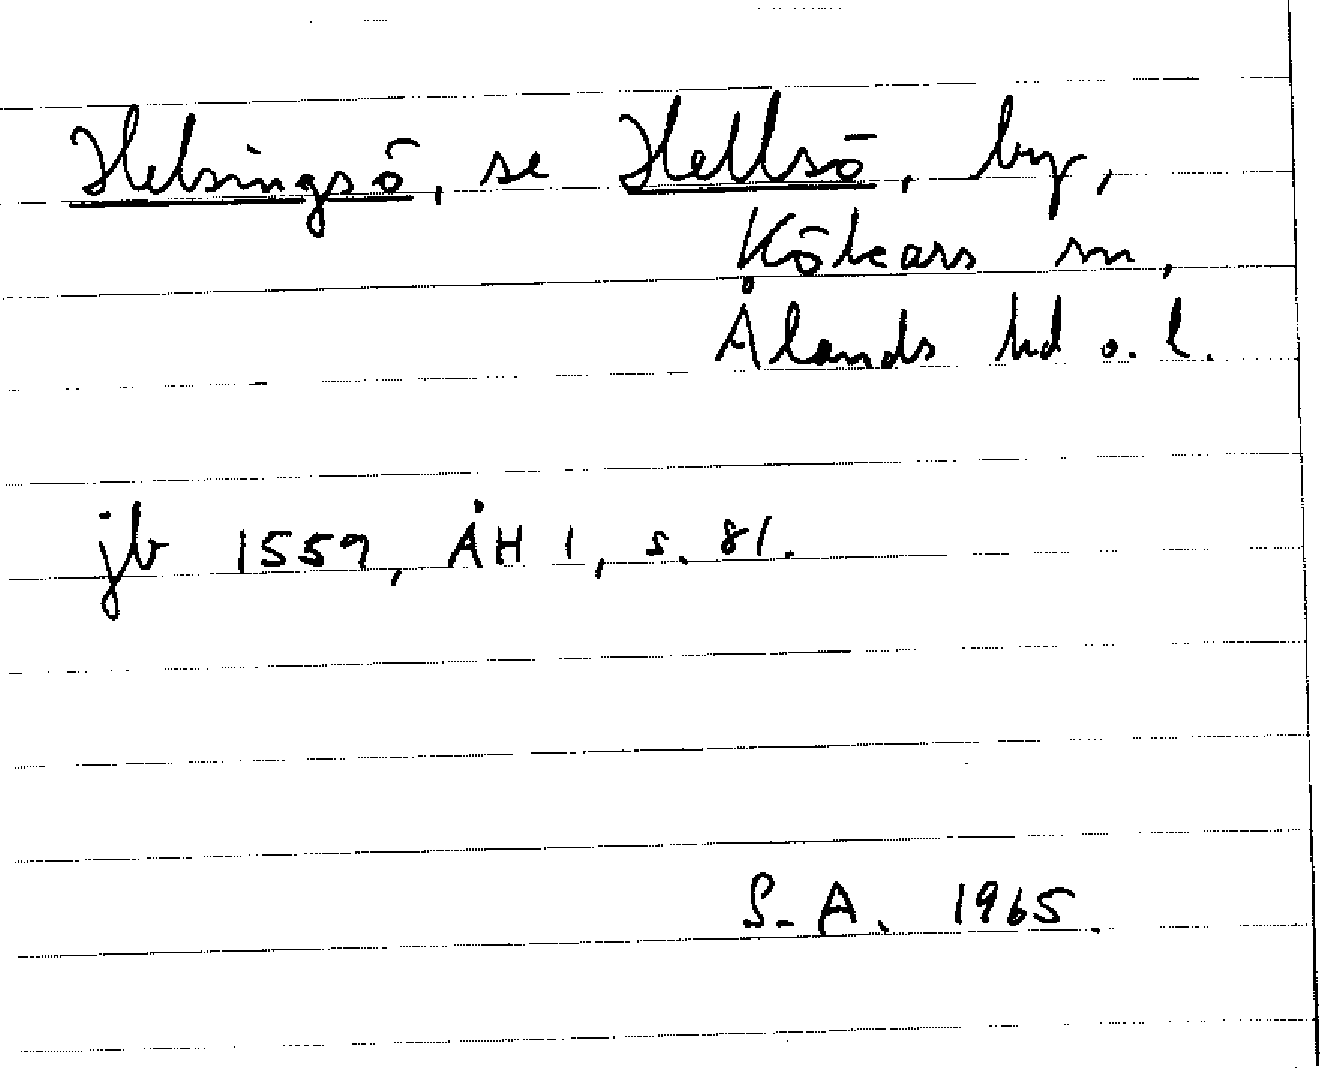 Helsingsö, se Hellsö, by,
Kökars sn,
Ålands hd o. l.
jb 1559, ÅH 1, s. 81.
S.A. 1965.